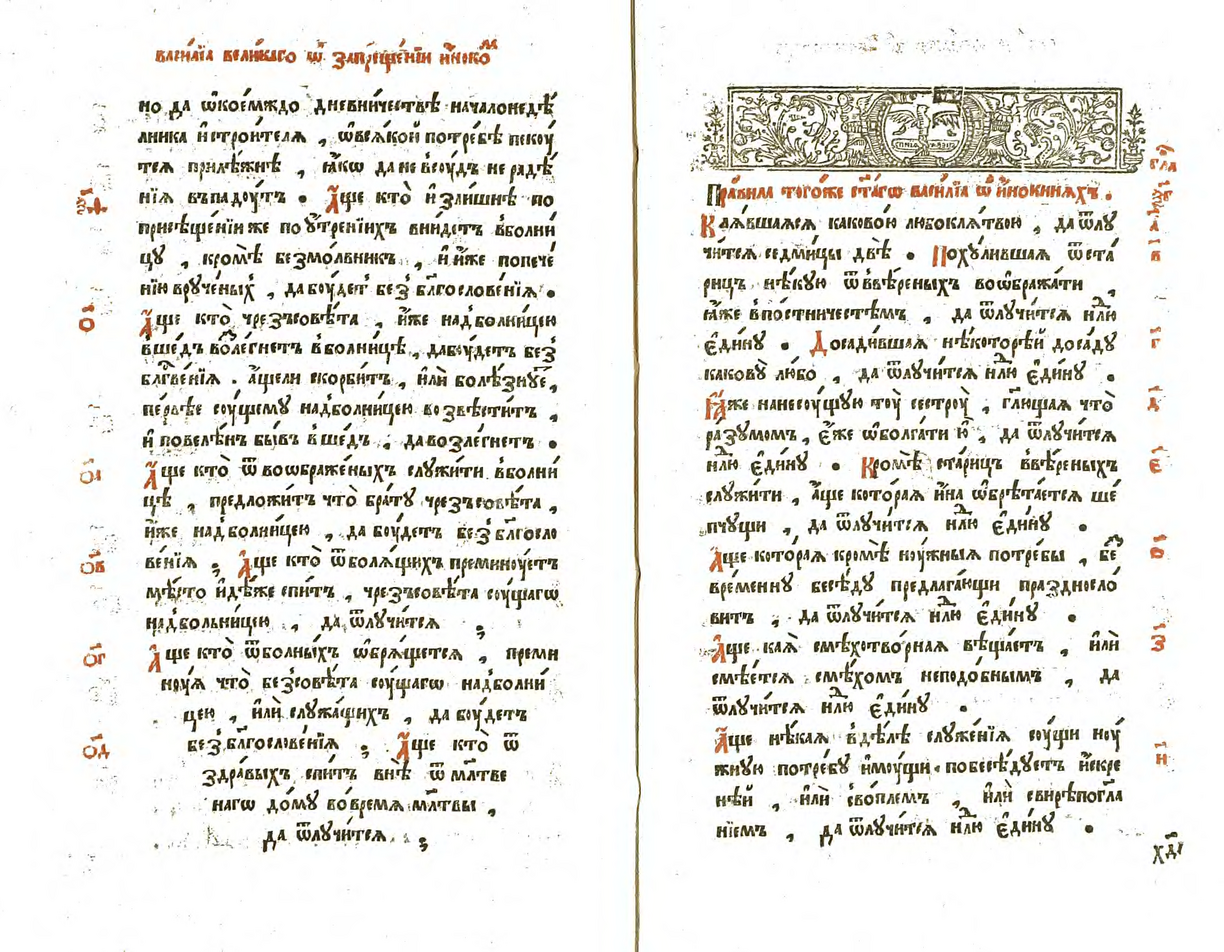 васи́лїа вели́каго ѿ запреще́нїи и҆́ноком
но да ѡ҆ коемꙗждо дневничествѣ начало недѣ́
лника и҆ строителѧ , ѡ҆ всѧкой потре́бѣ пекоу́
тсѧ прилѣ́жнѣ , ꙗ҆́кѡ да не в соудъ нерадѣ́
нїѧ въпадоу́тъ .
А҆́ще кто̀ и҆зли́шнѣ по
присѣще́нїи же по у҆́тренїихъ вни́детъ в болни́
цу , кромѣ̀ безмо́лвникъ , и҆ и҆̀же попече́
нїю вруче́ныхъ , да боу́детъ без̾ блгⷭ҇ослове́нїѧ .
о҃
А҆́ще кто̀ чрезъ совѣ́та , и҆́же над̾ болни́цею
вше́дъ возлѧ́гнетъ в болни́цѣ , да боу́детъ без̾
блгⷭ҇ве́нїѧ . а҆́ще ли скорби́тъ , и҆лѝ болѣ́знꙋе ,
пе́рвѣе соу́щему над̾ болни́цею возвѣсти́тъ ,
и҆ повелѣ́нъ бы́въ вше́дъ , да возлѧ́гнетъ .
о҃а
А҆́ще кто̀ ѿ воѡбраже́ныхъ служи́ти в болни́
цѣ , предло́житъ что̀ бра́ту чрезъ совѣ́та ,
и҆́же над̾ болни́цею , да боу́детъ без̾ блгⷭ҇осло
ве́нїѧ ;
о҃в
А҆́ще кто̀ ѿ болѧ́щихъ преминоу́етъ
мѣ́сто и҆дѣ́же спи́тъ , чрезъ совѣ́та соу́щагѡ
над̾ бо́льницею , да ѿлучи́тсѧ ;
о҃г
А҆́ще кто̀ ѿ болны́хъ ѡ҆брѧ́щетсѧ , преми
ноу́ѧ что̀ без̾ совѣ́та соу́щагѡ над̾ болни́
цею , и҆лѝ служа́щихъ , да боу́детъ
без̾ блгⷭ҇ослове́нїѧ ;
о҃д
А҆́ще кто̀ ѿ
здра́выхъ спи́тъ внѣ̀ ѿ млт҃ве
нагѡ до́му во вре́мѧ млт҃вы ,
да ѿлучи́тсѧ ;
Пра́вила того́же ст҃а́гѡ васи́лїа ѡ҆ и҆́нокинѧхъ .
Каѧ́вшаѧсѧ каково́ю либо клѧ́твою , да ѿлу
чи́тсѧ седми́цы двѣ̀ .
в҃
Похули́вшаѧ ѿ ста́
рицъ нѣ́кую ѿ ввѣ́реныхъ воѡбража́ти ,
ꙗ҆́же в по́стничествѣмъ , да ѿлучи́тсѧ нлⷣю
є҆ди́ну .
г҃
Досади́вшаѧ нѣ́которѣй доса́ду
какову̀ любо , да ѿлучи́тсѧ нлⷣю є҆ди́ну .
д҃
Ꙗ҆́же не на соу́щую тоу̀ сестроу̀ , гл҃ющаѧ что̀
ра́зумомъ , є҆́же ѡ҆болга́ти ю҆̀ , да ѿлучи́тсѧ
нлⷣю є҆ди́ну .
є҃
Кромѣ̀ ста́рицъ ввѣ́реныхъ
служи́ти , а҆́ще котораѧ и҆́на ѡ҆брѣта́етсѧ ше́
пчущи , да ѿлучи́тсѧ нлⷣю є҆ди́ну .
А҆́ще котораѧ кромѣ̀ ноу́жныѧ потре́бы , бе
вре́менну бесѣ́ду предлага́ющи праздносло́
витъ , да ѿлучи́тсѧ нлⷣю є҆ди́ну .
з҃
А҆́ще ка́ѧ смѣхотво́рнаѧ вѣща́етъ , и҆лѝ
смѣе́тсѧ смѣ́хомъ неподо́бнымъ , да
ѿлучи́тсѧ нлⷣю є҆ди́ну .
и҃
А҆́ще нѣ́каѧ в дѣ́лѣ служе́нїѧ соу́щи ноу́
жную потре́бу и҆моу́щи , побесѣ́дуетъ и҆́скре
нѣй , и҆лѝ с во́племъ , и҆лѝ свирѣ́по гла
нїемъ , да ѿлучи́тсѧ нлⷣю є҆ди́ну .